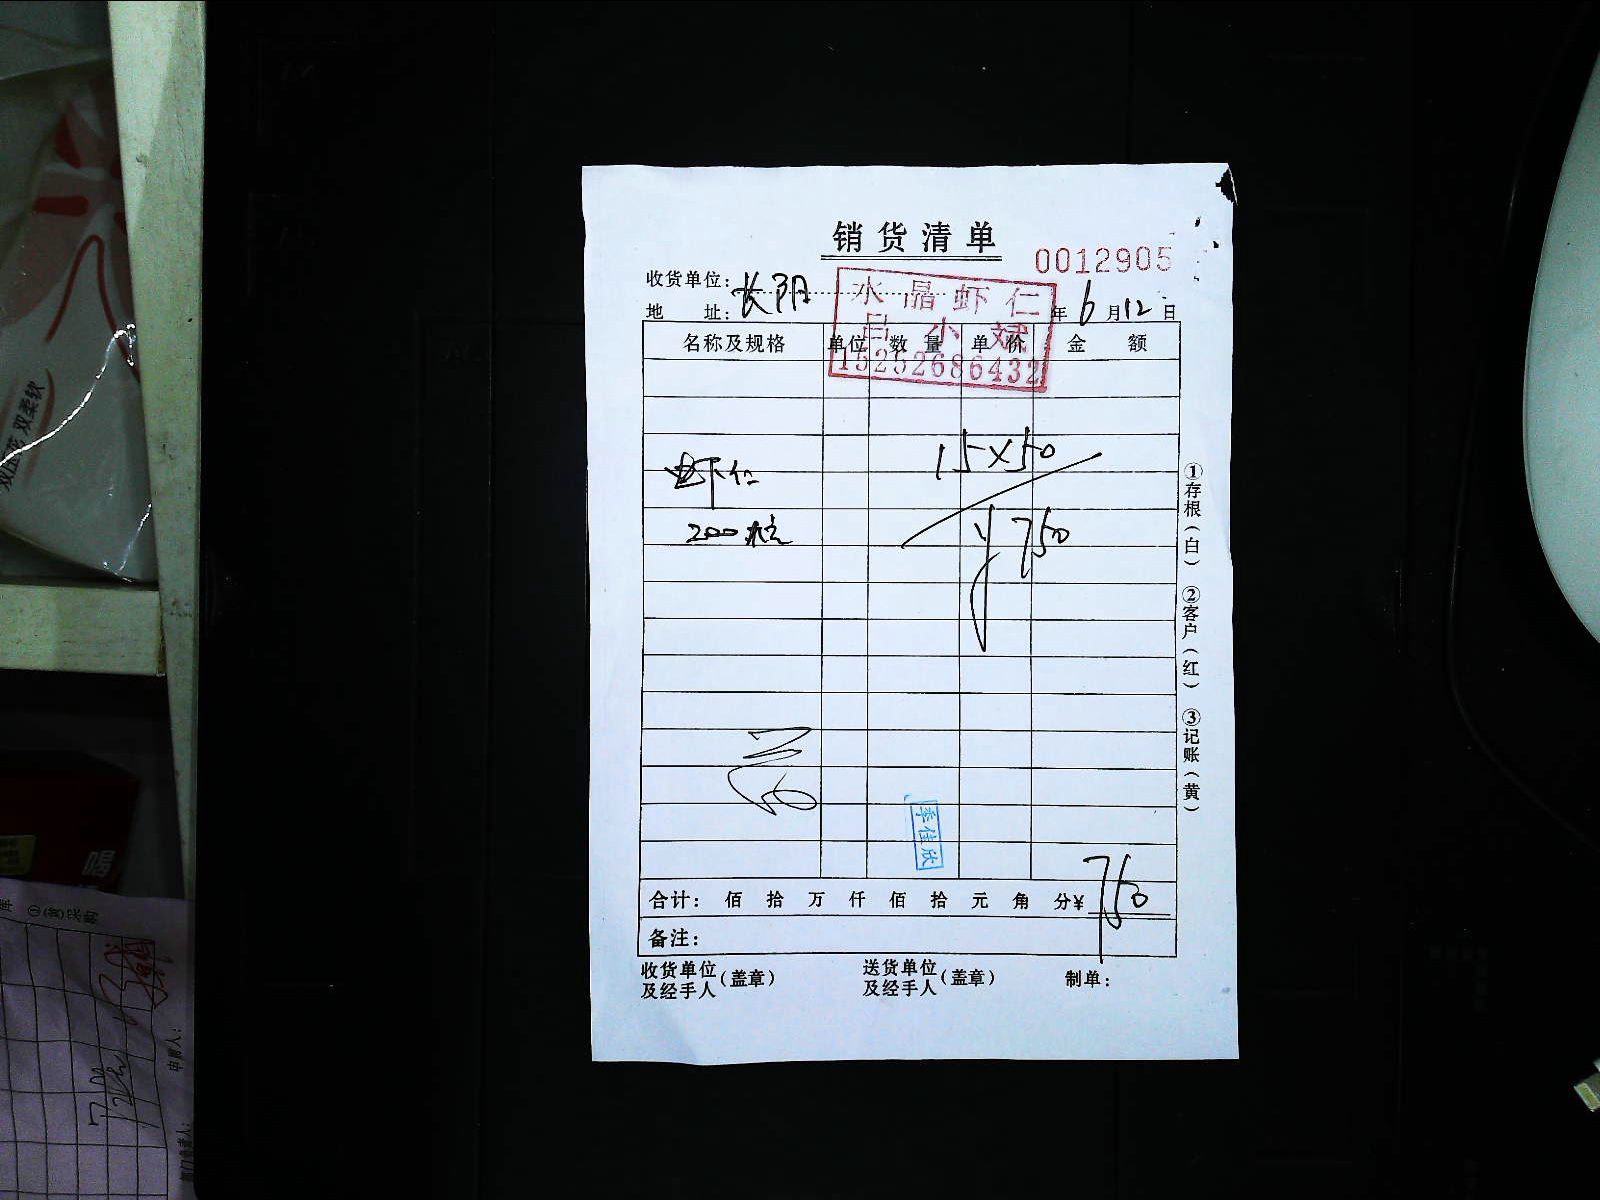 销货清单
0012905
收货单位：长阴
地 址： 年 6 月 12 日
水晶虾仁
吕小斌
15252686432
名称及规格 单位 数量 单价 金额
15×50
虾仁
200粒 ¥750
李佳欣
合计： 佰 拾 万 仟 佰 拾 元 角 分¥ 750
备注：
收货单位及经手人（盖章） 送货单位及经手人（盖章） 制单：
①存根（白） ②客户（红） ③记账（黄）
双柔软
喝
①黄采购
申购人：